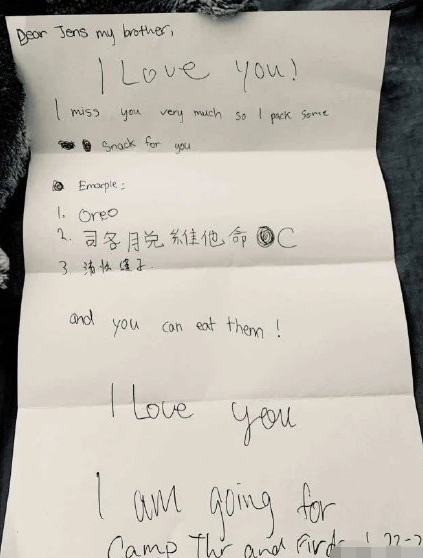 Dear Jens my brother,
I Love you!
I miss you very much so I pack some
snack for you
Emarple:
1. Oreo
2. 司各月兌維他命 C
3.
and you can eat them!
I Love you
I am going for
Camp Thr and